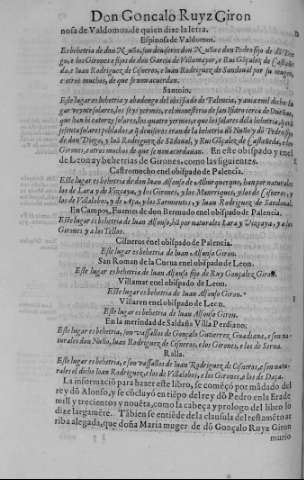 Don Gonçalo Ruyz Giron
nosa de Valdomon, de quien dize la letra.
Espinosa de Valdomon.
Es behetria de don Nuño, son deuiseros don Nuño e don Pedro fijo de dõ Die
go, e los Girones e fijos de don Garcia de Villamayor, e Ruy Gõçalez de Castañeda
e Iuan Rodriguez de Cisneros, e Iuan Rodriguez de Sandoual por su muger,
e otros muchos, de que se non acuerdan.
Santoio.
Este lugar es behetria y abadengo del obispado de Palencia, y auia en el dicho lu
gar veynte solares, los seys yermos,
que han
Girones, e otros muchos de que se non acuerdan. En este obispado y en el
de Leon ay behetrias de Girones, como las siguientes.
Castromocho en el obispado de Palencia.
Este lugar es behetria de don Iuan Alfonso de Alburquerque, han por naturales
los de Lara y de Vizcaya, y los Girones, y los Manriques, y los de Cisneros, y
los de Villalobos, y de Aça, y los Sarmientos, y Iuan Rodriguez de Sandoual.
En Campos, Fuentes de don Bermudo en el obispado de Palencia.
Este lugar es behetria de Iuan Alfonso, ha por naturales Lara y Vizcaya, y a los
Girones y a los Tellos.
Cisneros en el obispado de Palencia.
Este lugar es behetria de Iuan Alfonso Giron.
San Roman de la Cuena en el obispado de Leon.
Este lugar es behetria de Iuan Alfonso fijo de Ruy Gonçalez Giron.
Villamar en el obispado de Leon.
Este lugar es behetria de Iuan Alfonso Giron.
Villaren en el obispado de Leon.
Este lugar es behetria de Iuan Alfonso Giron.
En la merindad de Saldaña Villa Perdiano.
Este lugar es behetria, son vassallos de Gonçalo Gutierrez Guadiana, e son na-
turales don Nuño, Iuan Rodriguez de Cisneros, e los Girones, e los de Serna.
Este lugar es behetria, e son vassallos de Iuan Rodriguez de Cisneros, e son natu-
rales el dicho Iuan Rodriguez, e los de Villalobos, e los Girones, e los de Daça.
La informació para hazer este libro, se començó por mãdado del
rey dõ Alonso, y se cõcluyó en tiẽpo del rey dõ Pedro en la Era de
mill y trecientos y nouẽta, como la cabeça y prologo del libro lo
dize largamẽte. Tãbien se entiẽde de la clausula del testamẽto ar
riba alegada, que doña Maria muger de dõ Gonçalo Ruyz Giron
murio